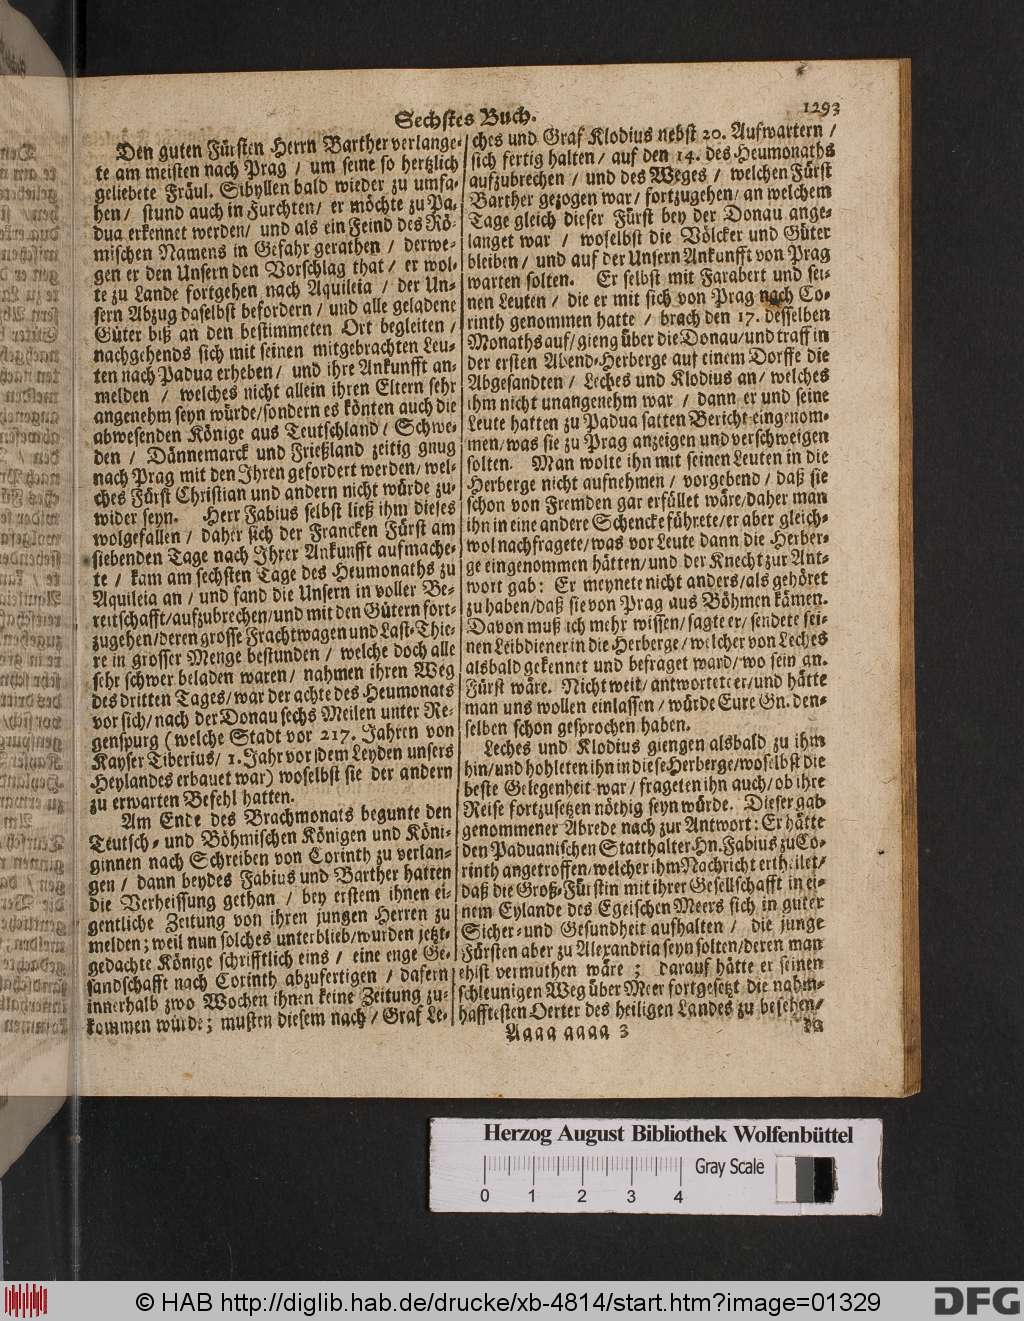 Sechstes Buch.
1293
Den guten Fürsten Herrn Barther verlange-
te am meisten nach Prag / um seine so hertzlich
geliebete Fräul. Sibyllen bald wieder zu umfa-
hen / stund auch in Furchten / er möchte zu Pa-
dua erkennet werden / und als ein Feind des Rö-
mischen Namens in Gefahr gerathen / derwe-
gen er den Unsern den Vorschlag that / er wol-
te zu Lande fortgehen nach Aquileia / der Un-
sern Abzug daselbst befordern / und alle geladene
Güter biß an den bestimmeten Ort begleiten /
nachgehends sich mit seinen mitgebrachten Leu-
ten nach Padua erheben / und ihre Ankunfft an-
melden / welches nicht allein ihren Eltern sehr
angenehm seyn würde / sondern es könten auch die
abwesenden Könige aus Teutschland / Schwe-
den / Dännemarck und Frießland zeitig gnug
nach Prag mit den Ihren gefordert werden / wel-
ches Fürst Christian und andern nicht würde zu-
wider seyn. Herr Fabius selbst ließ ihm dieses
wolgefallen / daher sich der Francken Fürst am
siebenden Tage nach Ihrer Ankunfft aufmache-
te / kam am sechsten Tage des Heumonaths zu
Aquileia an / und fand die Unsern in voller Be-
reitschafft / aufzubrechen / und mit den Gütern fort-
zugehen / deren grosse Frachtwagen und Last-Thie-
re in grosser Menge bestunden / welche doch alle
sehr schwer beladen waren / nahmen ihren Weg
des dritten Tages / war der achte des Heumonats
vor sich / nach der Donau sechs Meilen unter Re-
genspurg (welche Stadt vor 217. Jahren von
Kayser Tiberius / 1. Jahr vor dem Leyden unsers
Heylandes erbauet war) woselbst sie der andern
zu erwarten Befehl hatten.
Am Ende des Brachmonats begunte den
Teutsch- und Böhmischen Königen und Köni-
ginnen nach Schreiben von Corinth zu verlan-
gen / dann beydes Fabius und Barther hatten
die Verheissung gethan / bey erstem ihnen ei-
gentliche Zeitung von ihren jungen Herren zu
melden; weil nun solches unterblieb / wurden jetzt-
gedachte Könige schrifftlich eins / eine enge Ge-
sandschafft nach Corinth abzufertigen / dafern
innerhalb zwo Wochen ihnen keine Zeitung zu-
kommen würde; musten diesem nach / Graf Le-
ches und Graf Klodius nebst 20. Aufwartern /
sich fertig halten / auf den 14. des Heumonaths
aufzubrechen / und des Weges / welchen Fürst
Barther gezogen war / fortzugehen / an welchem
Tage gleich dieser Fürst bey der Donau ange-
langet war / woselbst die Völcker und Güter
bleiben / und auf der Unsern Ankunfft von Prag
warten solten. Er selbst mit Farabert und sei-
nen Leuten / die er mit sich von Prag nach Co-
rinth genommen hatte / brach den 17. desselben
Monaths auf / gieng über die Donau / und traff in
der ersten Abend-Herberge auf einem Dorffe die
Abgesandten / Leches und Klodius an / welches
ihm nicht unangenehm war / dann er und seine
Leute hatten zu Padua satten Bericht eingenom-
men / was sie zu Prag anzeigen und verschweigen
solten. Man wolte ihn mit seinen Leuten in die
Herberge nicht aufnehmen / vorgebend / daß sie
schon von Fremden gar erfüllet wäre / daher man
ihn in eine andere Schencke führete / er aber gleich-
wol nachfragete / was vor Leute dann die Herber-
ge eingenommen hätten / und der Knecht zur Ant-
wort gab: Er meynete nicht anders / als gehöret
zu haben / daß sie von Prag aus Böhmen kämen.
Davon muß ich mehr wissen / sagte er / sendete sei-
nen Leibdiener in die Herberge / welcher von Leches
alsbald gekennet und befraget ward / wo sein gn.
Fürst wäre. Nicht weit / antwortete er / und hätte
man uns wollen einlassen / würde Eure Gn. den-
selben schon gesprochen haben.
Leches und Klodius giengen alsbald zu ihm
hin / und hohleten ihn in diese Herberge / woselbst die
beste Gelegenheit war / frageten ihn auch / ob ihre
Reise fortzusetzen nöthig seyn würde. Dieser gab
genommener Abrede nach zur Antwort: Er hätte
den Paduanischen Statthalter Hn. Fabius zu Co-
rinth angetroffen / welcher ihm Nachricht ertheilet /
daß die Groß-Fürstin mit ihrer Gesellschafft in ei-
nem Eylande des Egeischen Meers sich in guter
Sicher- und Gesundheit aufhalten / die junge
Fürsten aber zu Alexandria seyn solten / deren man
ehist vermuthen wäre; darauf hätte er seinen
schleunigen Weg über Meer fortgesetzt die nahm-
hafftesten Oerter des heiligen Landes zu besehen /
Aaaa aaaa 3
da
Herzog August Bibliothek Wolfenbüttel
Gray Scale
0 1 2 3 4
© HAB http://diglib.hab.de/drucke/xb-4814/start.htm?image=01329
DFG